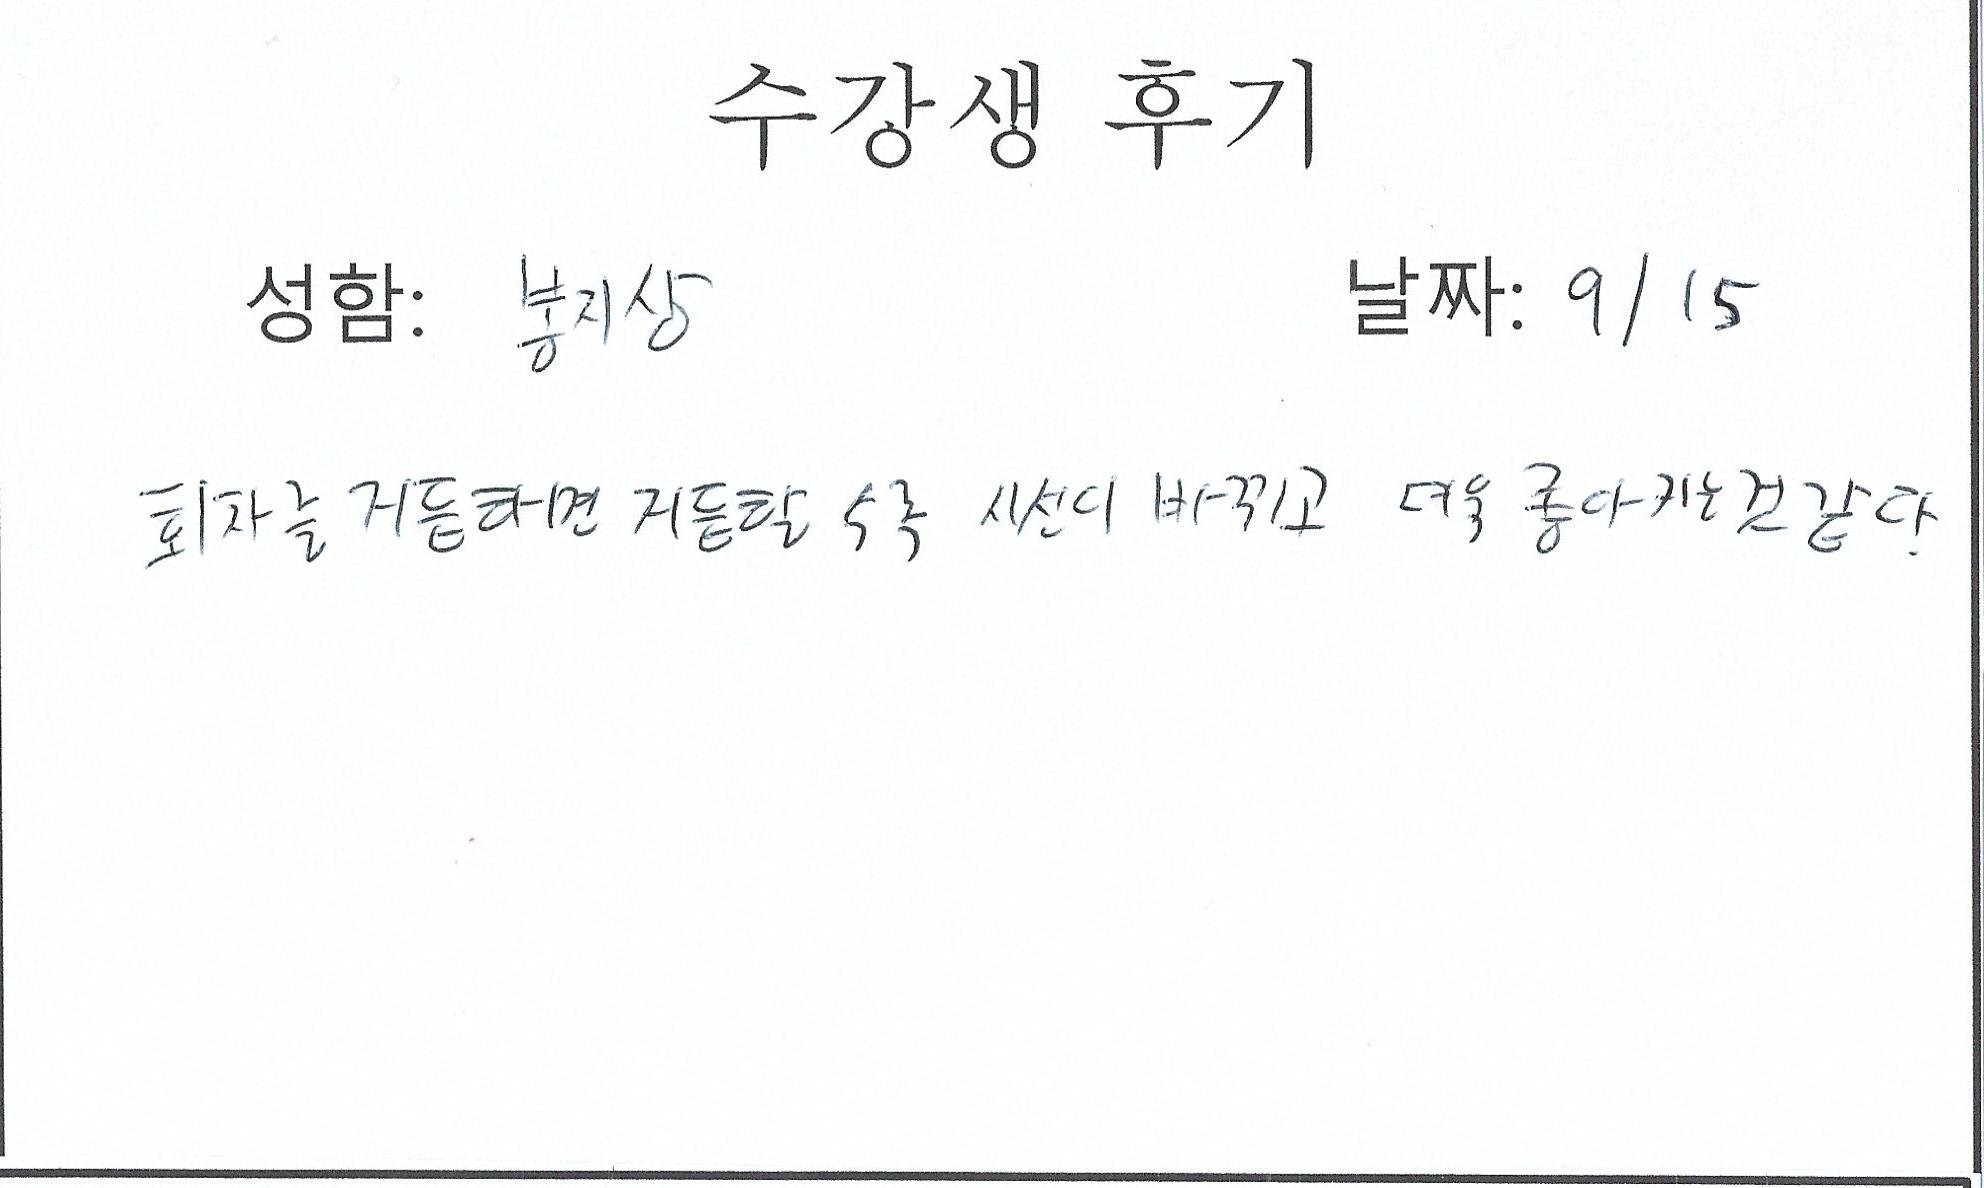 수강생 후기
성함: 봉지상 날짜: 9/15
회차를 거듭하면 거듭할 수록 시선이 바뀌고 더욱 좋아지는것 같다.